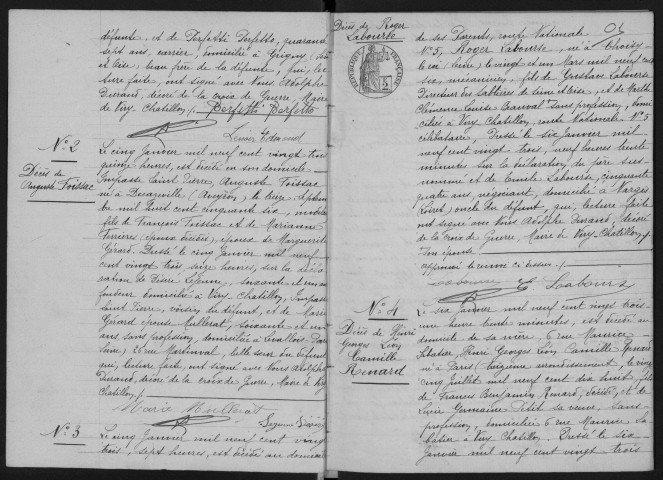 défunte, et de Perfetti Perfetto, quarante
sept ans, carrier, domicilié à Grigny
beau père de la défunte, qui, lec-
ture faite, ont signé avec Nous Adolphe
Durand, décoré de la Croix de Guerre, Maire
de Viry Chatillon /. Perfetti Perfetto
N° 2
Décès de
Auguste Toissac
Le cinq Janvier mil neuf cent vingt trois
quinze heures, est décédé en son domicile
impasse Saint Pierre, Auguste Toissac
né à Decazeville (Aveyron), le
mil huit cent cinquante six,
fils de François Toissac et de Marianne
(époux décédés), époux de Marguerite
Gérard. Dressé le cinq Janvier mil neuf
cent vingt trois, seize heures, sur la décla
ration de Pierre Lejeune, soixante et un ans
domicilié à Viry Chatillon, impasse
Saint Pierre, voisin du défunt, et de Marie
Gérard épouse Mullerat, soixante et un
ans, sans profession, domiciliée à Levallois Perret
(Seine) 25 rue Martinval, belle sœur du défunt
qui, lecture faite, ont signé avec Nous Adolphe
Durand, décoré de la Croix de Guerre, Maire de Viry
Chatillon /.
Marie Mullerat
N° 3
Le cinq Janvier mil neuf cent vingt
trois, sept heures, est décédé au domicile
Décès de Roger
Labourse
RÉPUBLIQUE FRANÇAISE
de ses Parents, route Nationale
N° 5, Roger Labourse, né à Choisy
le roi (Seine), le vingt et un Mars mil neuf cent
six, mécanicien, fils de Gustave Labourse
Directeur des Sablières de Seine et Oise, et de Marthe
Clémence Louise Bauval sans profession, domi-
ciliés à Viry Chatillon, route Nationale N° 5
célibataire. Dressé le six Janvier mil
neuf cent vingt trois, neuf heures trente
minutes sur la déclaration du père sus
nommé et de Emile Labourse, cinquante
quatre ans, négociant, domicilié à Nargis
(Loiret), oncle du défunt, qui, lecture faite
ont signé avec Nous Adolphe Durand, décoré
de la Croix de Guerre, Maire de Viry-Chatillon /.
approuvé le renvoi ci dessus /.
Labourse E Labourse
N° 4
Décès de Henri
Georges Léon
Camille
Renard
Le six Janvier mil neuf cent vingt trois
une heure trente minutes, est décédé au
domicile de sa mère, 6 rue Maurice
Sabatier, Henri Georges Léon Camille Renard
né à Paris, treizième arrondissement, le vingt
cinq juillet mil neuf cent dix huit, fils
de Francis Benjamin Renard, décédé, et de
Lucie Germaine Petit sa veuve, sans
profession, domiciliée 6 rue Maurice Sa
batier à Viry Chatillon. Dressé le six
Janvier mil neuf cent vingt trois